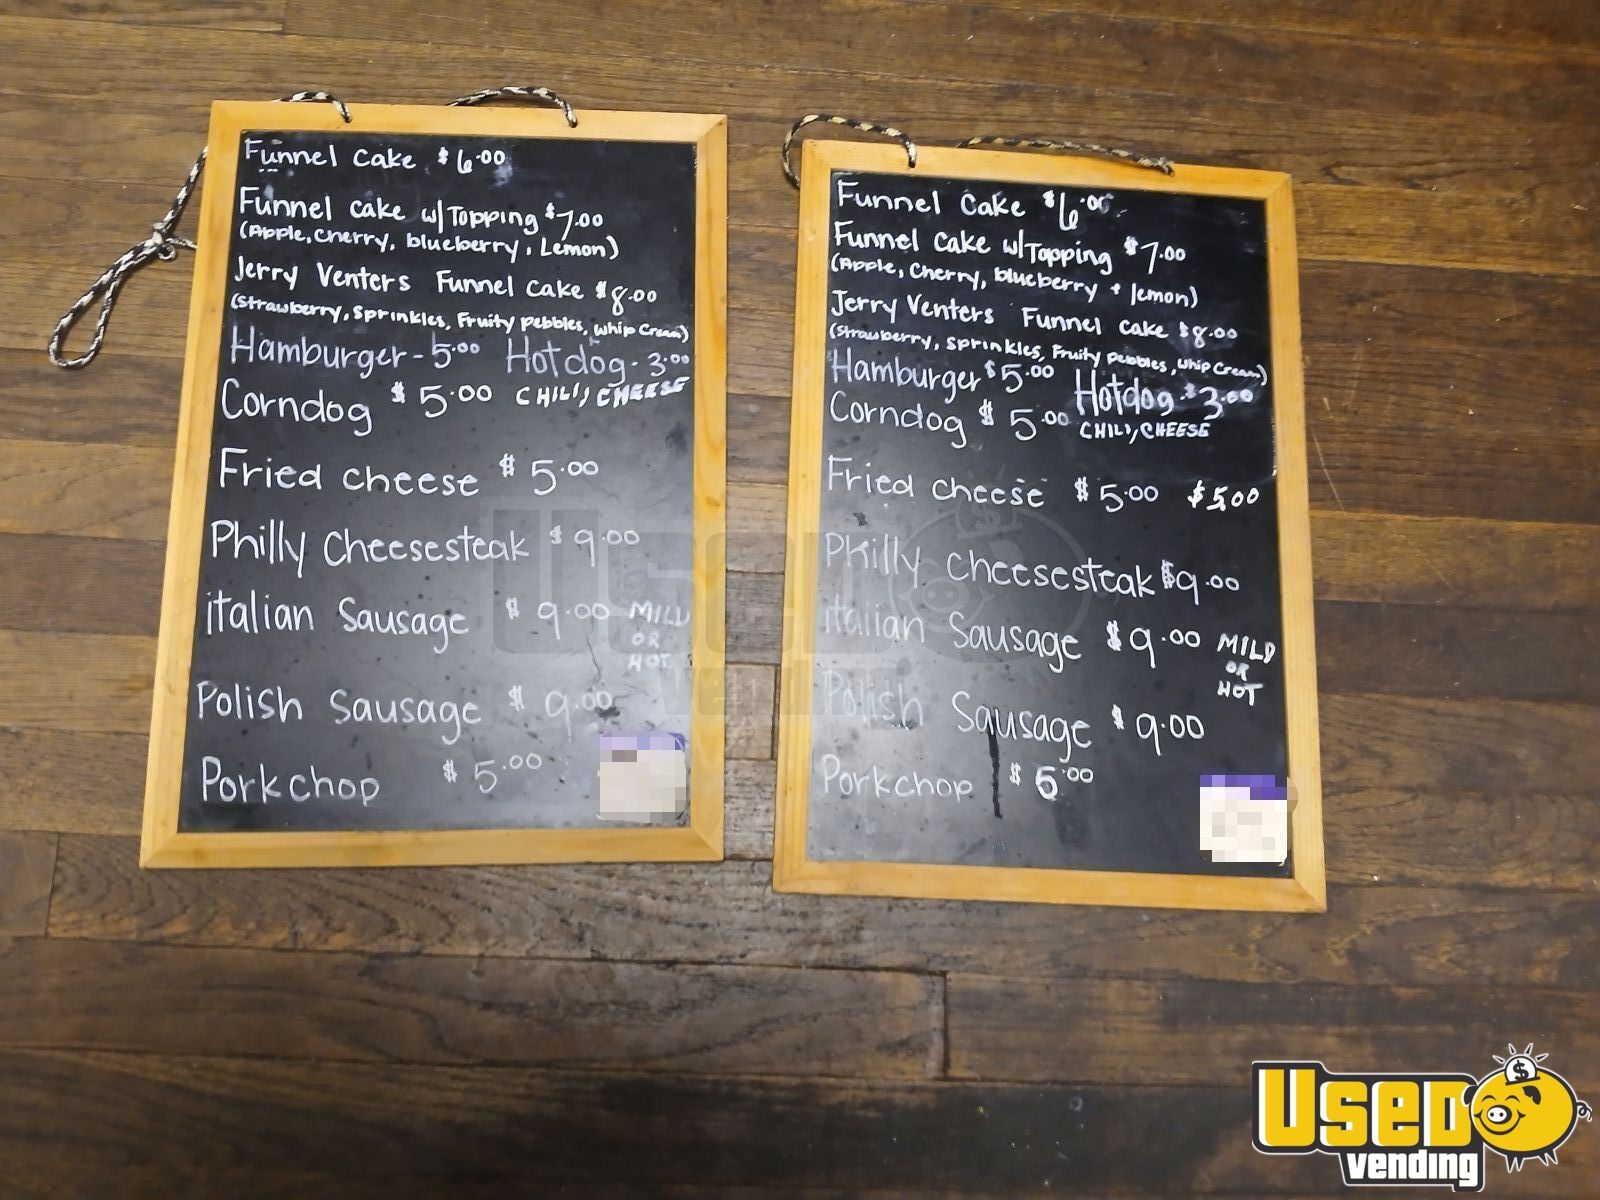 Funnel Cake $6.00
Funnel Cake w/Topping $7.00
(Apple, Cherry, blueberry, Lemon)
Jerry Venters Funnel Cake $8.00
(Strawberry, Sprinkles, Fruity pebbles, Whip Cream)
Hamburger - 5.00 Hotdog - 3.00
Corndog $5.00 CHILI, CHEESE
Fried Cheese $5.00
Philly Cheesesteak $9.00
italian Sausage $9.00 MILD
OR
HOT
Polish Sausage $9.00
Porkchop $5.00
Funnel Cake $6.00
Funnel Cake w/Topping $7.00
(Apple, Cherry, blueberry + lemon)
Jerry Venters Funnel Cake $8.00
(Strawberry, Sprinkles, Fruity pebbles, Whip Cream)
Hamburger $5.00 Hotdog $3.00
Corndog $5.00 CHILI, CHEESE
Fried Cheese $5.00 $5.00
Philly Cheesesteak $9.00
italian Sausage $9.00 MILD
OR
HOT
Polish Sausage $9.00
Porkchop $5.00
USED
vending
Used
vending